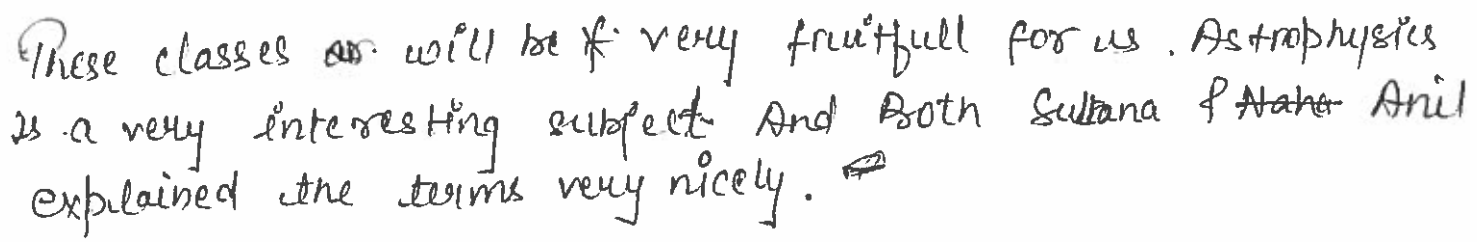 These classes will be very fruitfull for us. Astrophysics
is a very interesting subject And Both Sultana & Anil
explained the terms very nicely.